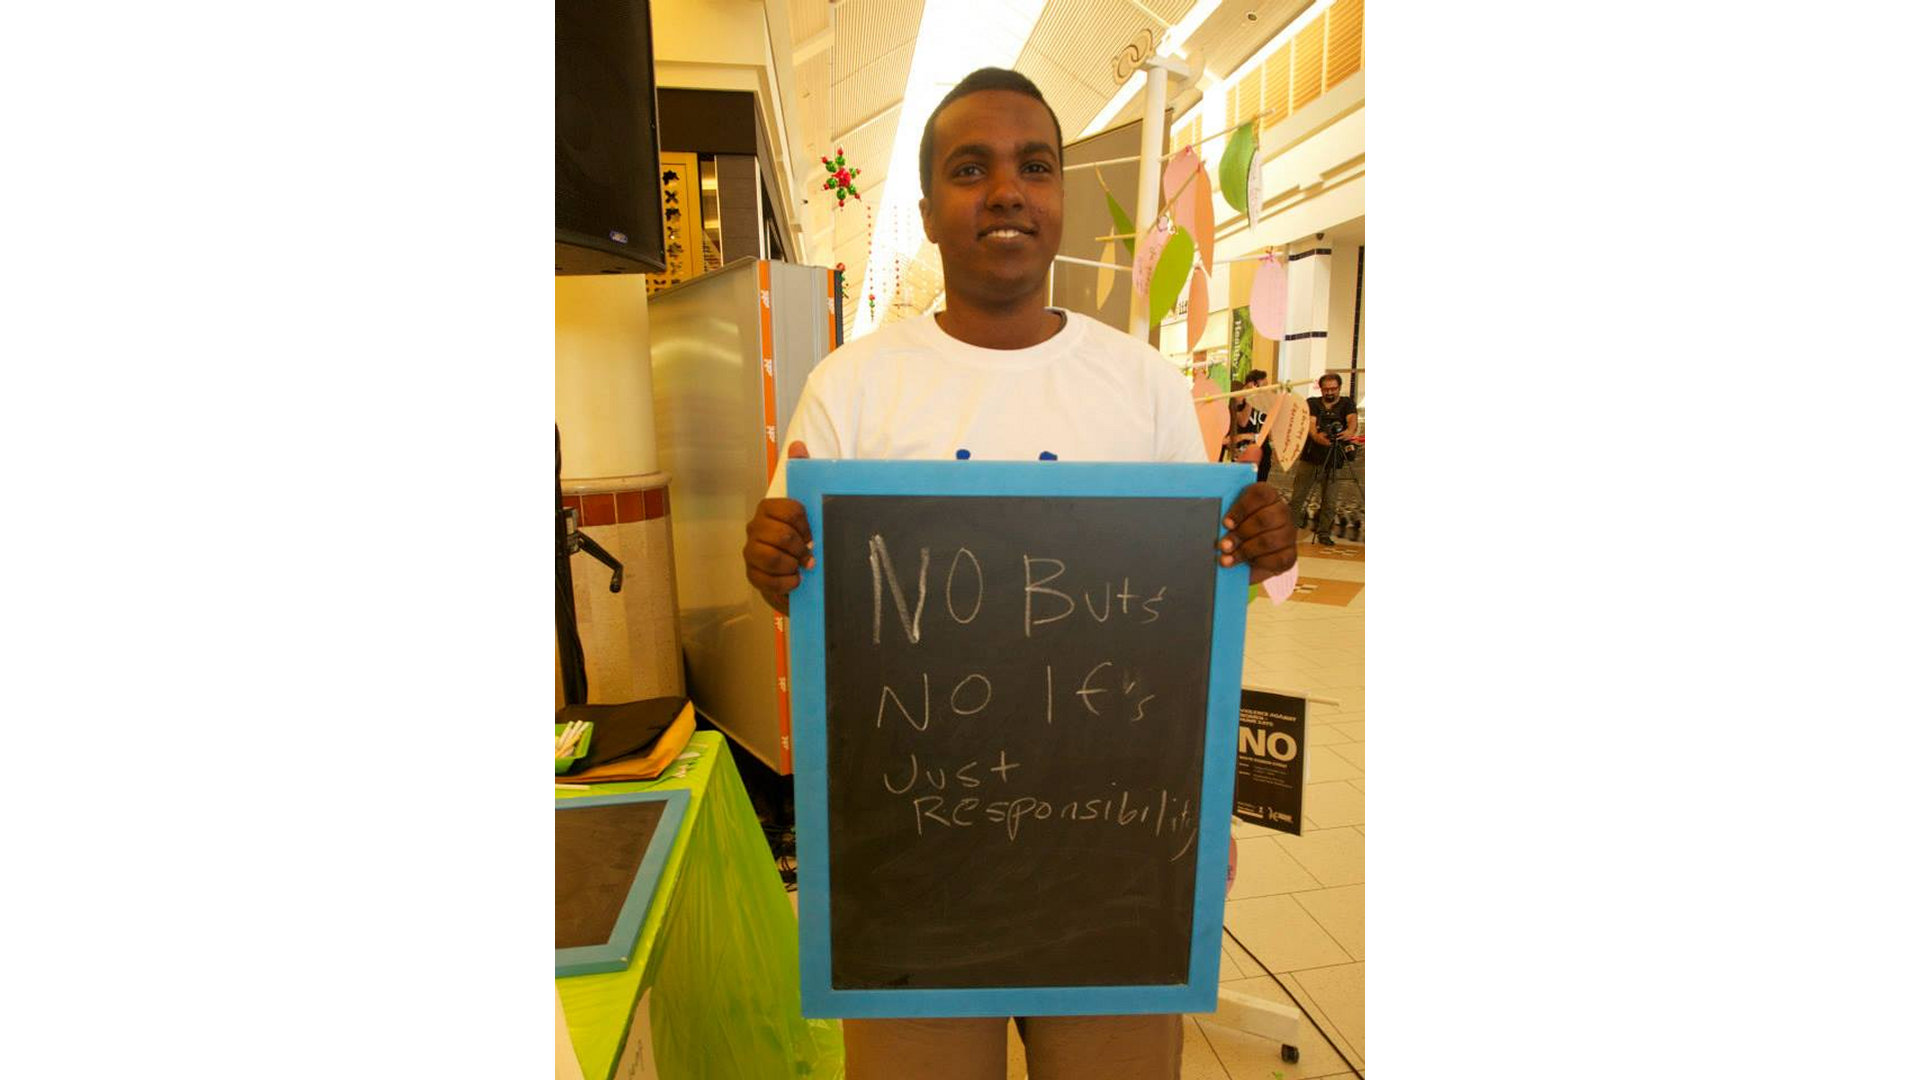 NO Buts
NO If's
Just
Responsibility
VIOLENCE AGAINST
WOMEN -
NO
Healthy